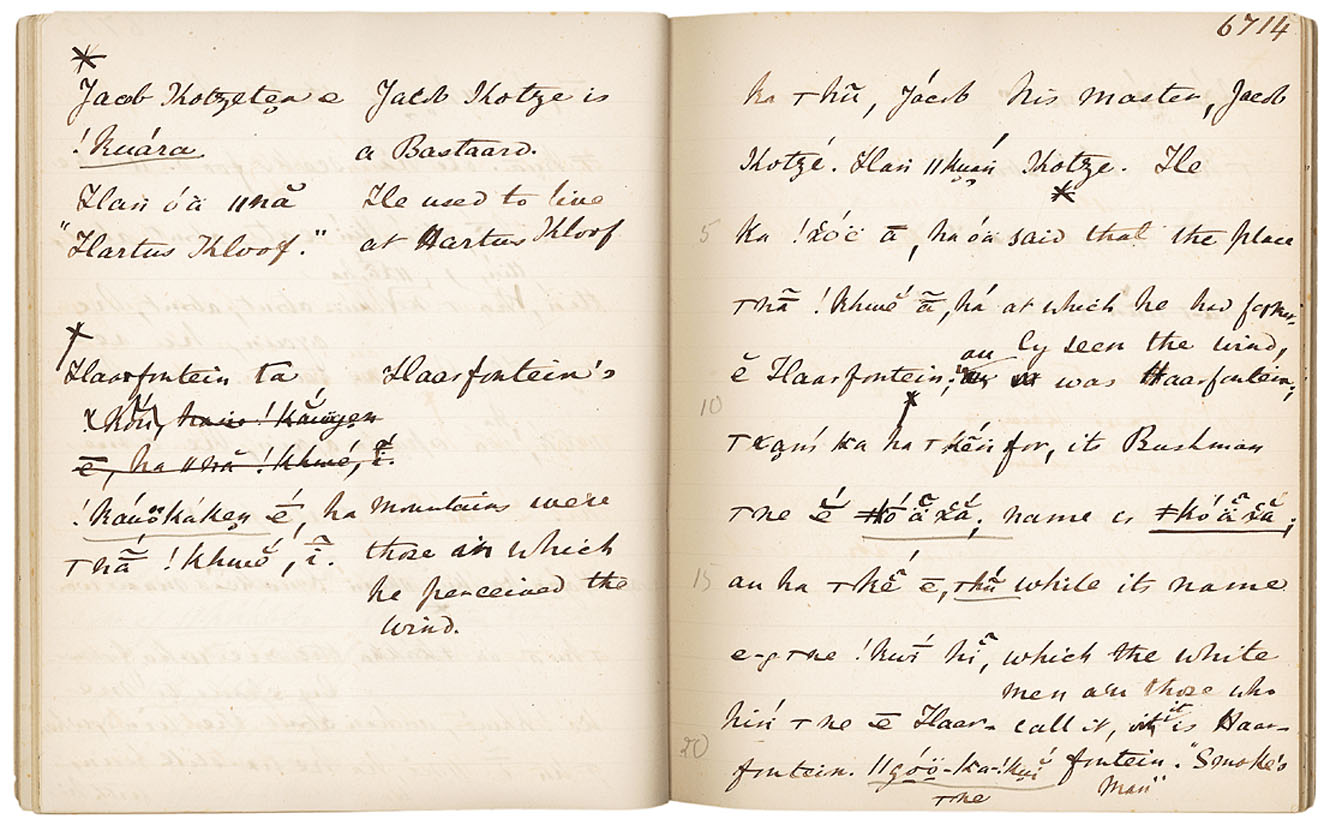 Jacob Kotzeten e    Jacob Kotze is
!kuára    a Bastaard.
Han óä ǁnă    He used to live
"Hartus Kloof."    at Hartus Kloof
Haarfontein ta    Haarfontein's
!káuökáken é, ha    mountains were
ǀnā́ !khwé, ĩ.    those in which
he perceived the
wind.
6714
ha ǀhű, Jácob    his master, Jacob
Kotzé. Han ǁkuáṅ    Kotze. He
5    ka !xóë ā, ha óä    said that the place
ǀnā̃ !khwé ā, há    at which he had former-
ly seen the wind,
ĕ Haarfontein;    was Haarfontein;
10
for, its Bushman
ǀne ĕ́ ǂkóä̃xă;    name is ǂkóä̃xă;
15    au ha ǀkẽ́ ē, ǀhũ    while its name
e-g ǀne !kuí hĩ,    which the white
men are those who
hiń ǀne ē Haar-    call it, it is Haar-
20    fontein. ǁgóö-ka-!kuí    fontein. "Smoke's
ǀne    Man"